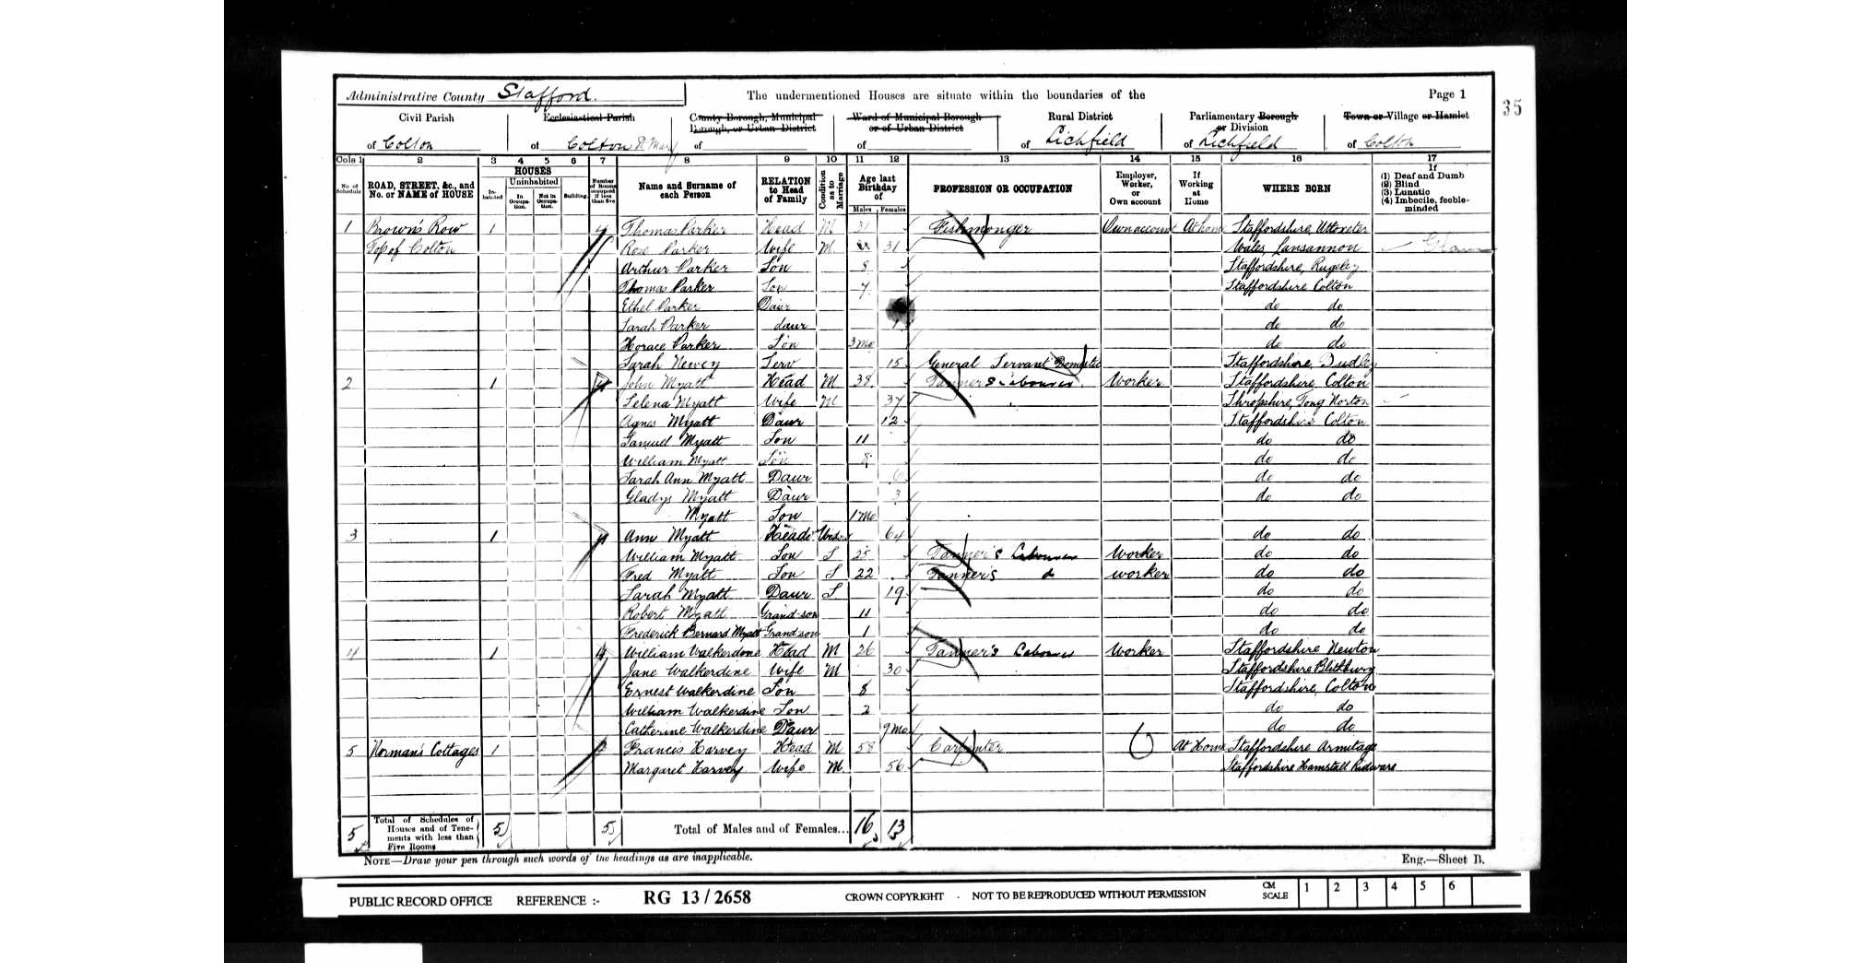 Administrative County Stafford. The undermentioned Houses are situate within the boundaries of the Page 1
35
Civil Parish Ecclesiastical Parish County Borough, Municipal Borough, or Urban District Ward of Municipal Borough or of Urban District Rural District Parliamentary Borough or Division Town or Village or Hamlet
of Colton of Colton St Mary of of of Lichfield of Lichfield of Colton
Cols 1 2 3 4 5 6 7 8 9 10 11 12 13 14 15 16 17
No. of Schedule ROAD, STREET, &c., and No. or NAME of HOUSE HOUSES Inhabited Uninhabited In Occupation. Not in Occupation. Building. Number of Rooms occupied if less than five Name and Surname of each Person RELATION to Head of Family Condition as to Marriage Age last Birthday of Males Females PROFESSION OR OCCUPATION Employer, Worker, or Own account If Working at Home WHERE BORN If (1) Deaf and Dumb (2) Blind (3) Lunatic (4) Imbecile, feeble-minded
1 Brown's Row 1 4 Thomas Parker Head M 31 Fishmonger Own account At home Staffordshire, Uttoxeter
Top of Colton Rose Parker Wife M 31 Wales, Lansannon
Arthur Parker Son 8 Staffordshire, Rugeley
Thomas Parker Son 7 Staffordshire Colton
Ethel Parker Daur do do
Sarah Parker daur do do
Horace Parker Son 3 Mo do do
Sarah Newey Serv 15 General Servant Domestic Staffordshire, Dudley
2 1 4 John Myatt Head M 38 Tanner's Labourer Worker Staffordshire, Colton
Selena Myatt Wife M 37 Shropshire, Tong Norton
Agnes Myatt Daur 12 Staffordshire Colton
Samuel Myatt Son 11 do do
William Myatt Son 8 do do
Sarah Ann Myatt Daur 6 do do
Gladys Myatt Daur 3 do do
Myatt Son 1 Mo
3 1 4 Ann Myatt Head Wid 64 do do
William Myatt Son S 25 Tanner's Labourer Worker do do
Fred Myatt Son S 22 Tanner's do worker do do
Sarah Myatt Daur S 19 do do
Robert Myatt Grandson 11 do do
Frederick Bernard Myatt Grandson 1 do do
4 1 4 William Walkerdone Head M 26 Tanner's Labourer Worker Staffordshire Newton
Jane Walkerdine Wife M 30 Staffordshire Blithbury
Ernest Walkerdine Son 8 Staffordshire, Colton
William Walkerdine Son 2 do do
Catherine Walkerdine Daur 9 Mo do do
5 Norman's Cottages 1 Francis Harvey Head M 58 Carpenter At Home Staffordshire Armitage
Margaret Harvey Wife M 56 Staffordshire Hamstall Ridware
5 Total of Schedules of Houses and of Tenements with less than Five Rooms 5 5 Total of Males and of Females... 16 13
NOTE—Draw your pen through such words of the headings as are inapplicable. Eng.—Sheet B.
PUBLIC RECORD OFFICE REFERENCE :- RG 13/2658 CROWN COPYRIGHT - NOT TO BE REPRODUCED WITHOUT PERMISSION CM SCALE 1 2 3 4 5 6